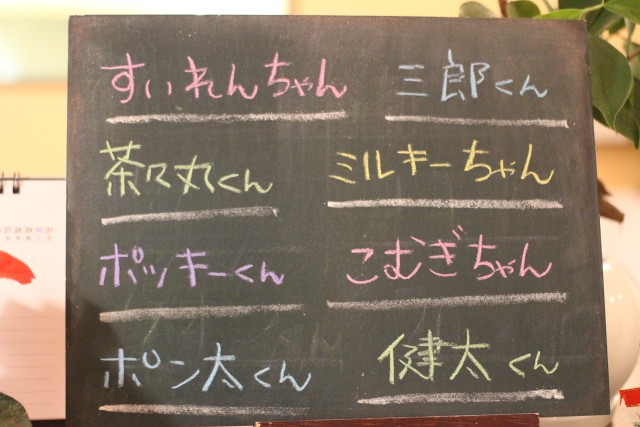 すいれんちゃん
三郎くん
茶々丸くん
ミルキーちゃん
ポッキーくん
こむぎちゃん
ポン太くん
健太くん